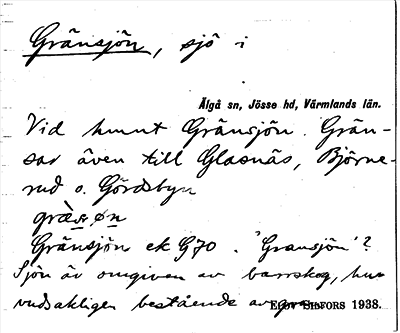 Gränsjön, sjö i
Älgå sn, Jösse hd, Värmlands län.
Vid hmnt Gränsjön. Grän-
sar även till Glasnäs, Björne-
rud o. Gördsbyn
Gränsjön ek G70. 'Gransjön'?
Sjön är omgiven av barrskog, huv
vudsakligen bestående av gran.
ELOV SILFORS 1938.